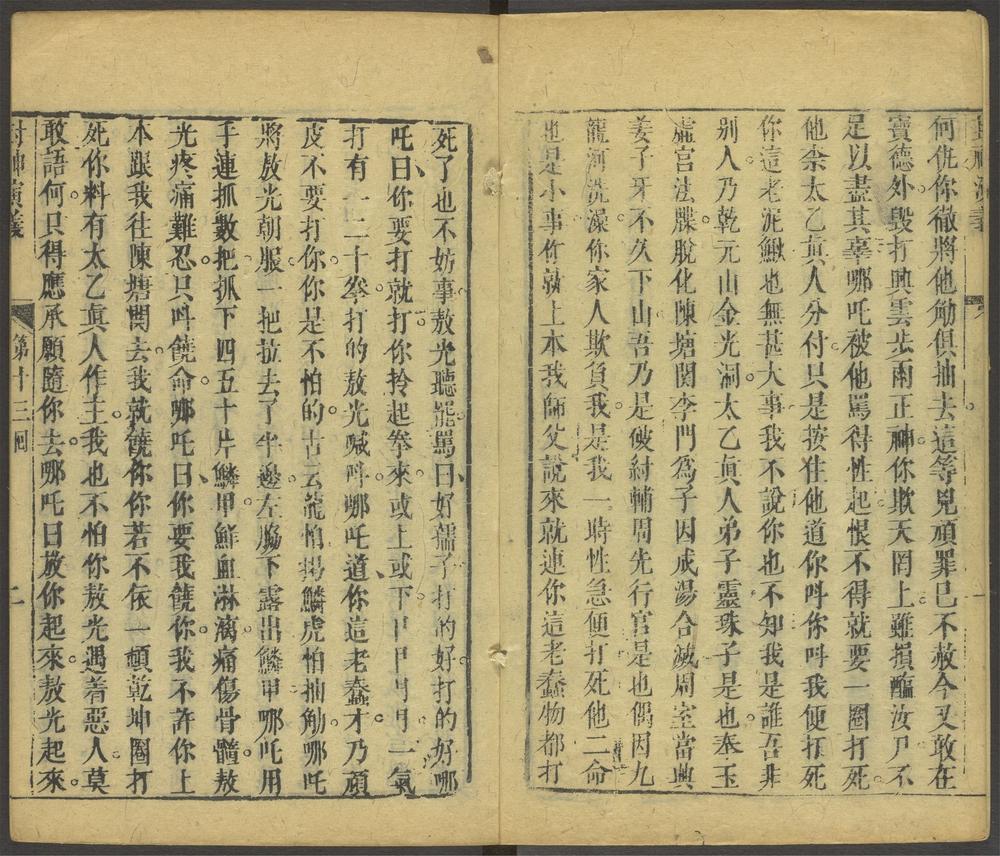 何仇你徹將他觔俱抽去這等兇頑罪已不赦今又敢在
寶德外毀打興雲步雨正神你欺天罔上雖損醢汝尸不
足以盡其辜哪吒被他罵得性起恨不得就要一圈打死
他柰太乙眞人分付只是按住他道你呌你呌我便打死
你這老泥鰍也無甚大事我不說你也不知我是誰吾非
别人乃乾元山金光洞太乙眞人弟子靈珠子是也奉玉
虛宫法牒脫化陳塘関李門爲子因成湯合滅周室當興
姜子牙不久下山吾乃是破紂輔周先行官是也偶因九
龍河洗澡你家人欺負我是我一時性急便打死他二命
也是小事你就上本我師父說來就連你這老蠢物都打
死了也不妨事敖光聽罷罵曰好孺子打的好打的好哪
吒曰你要打就打你拎起拳來或上或下一氣
打有一二十拳打的敖光喊呌哪吒道你這老蠢才乃頑
皮不要打你你是不怕的古云龍怕揭鱗虎怕抽觔哪吒
將敖光朝服一把拉去了半邊左脇下露出鱗甲哪吒用
手連抓數把抓下四五十片鱗甲鮮血淋漓痛傷骨髓敖
光疼痛難忍只呌饒命哪吒曰你要我饒你我不許你上
本跟我往陳塘関去我就饒你你若不依一頓乾坤圈打
死你料有太乙眞人作主我也不怕你敖光遇着惡人莫
敢語何只得應承願隨你去哪吒曰放你起來敖光起來
封神演義
第十三囘
二